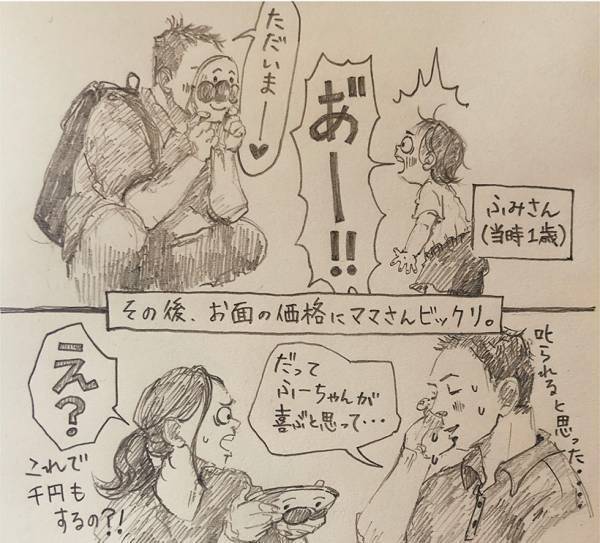 ただいまー♥
あ゛ー!!
ふみさん
(当時1歳)
その後、お面の価格にママさんビックリ。
え?
これで
千円も
するの?!
だって
ふーちゃんが
喜ぶと思って・・・
叱られると思った・・・・